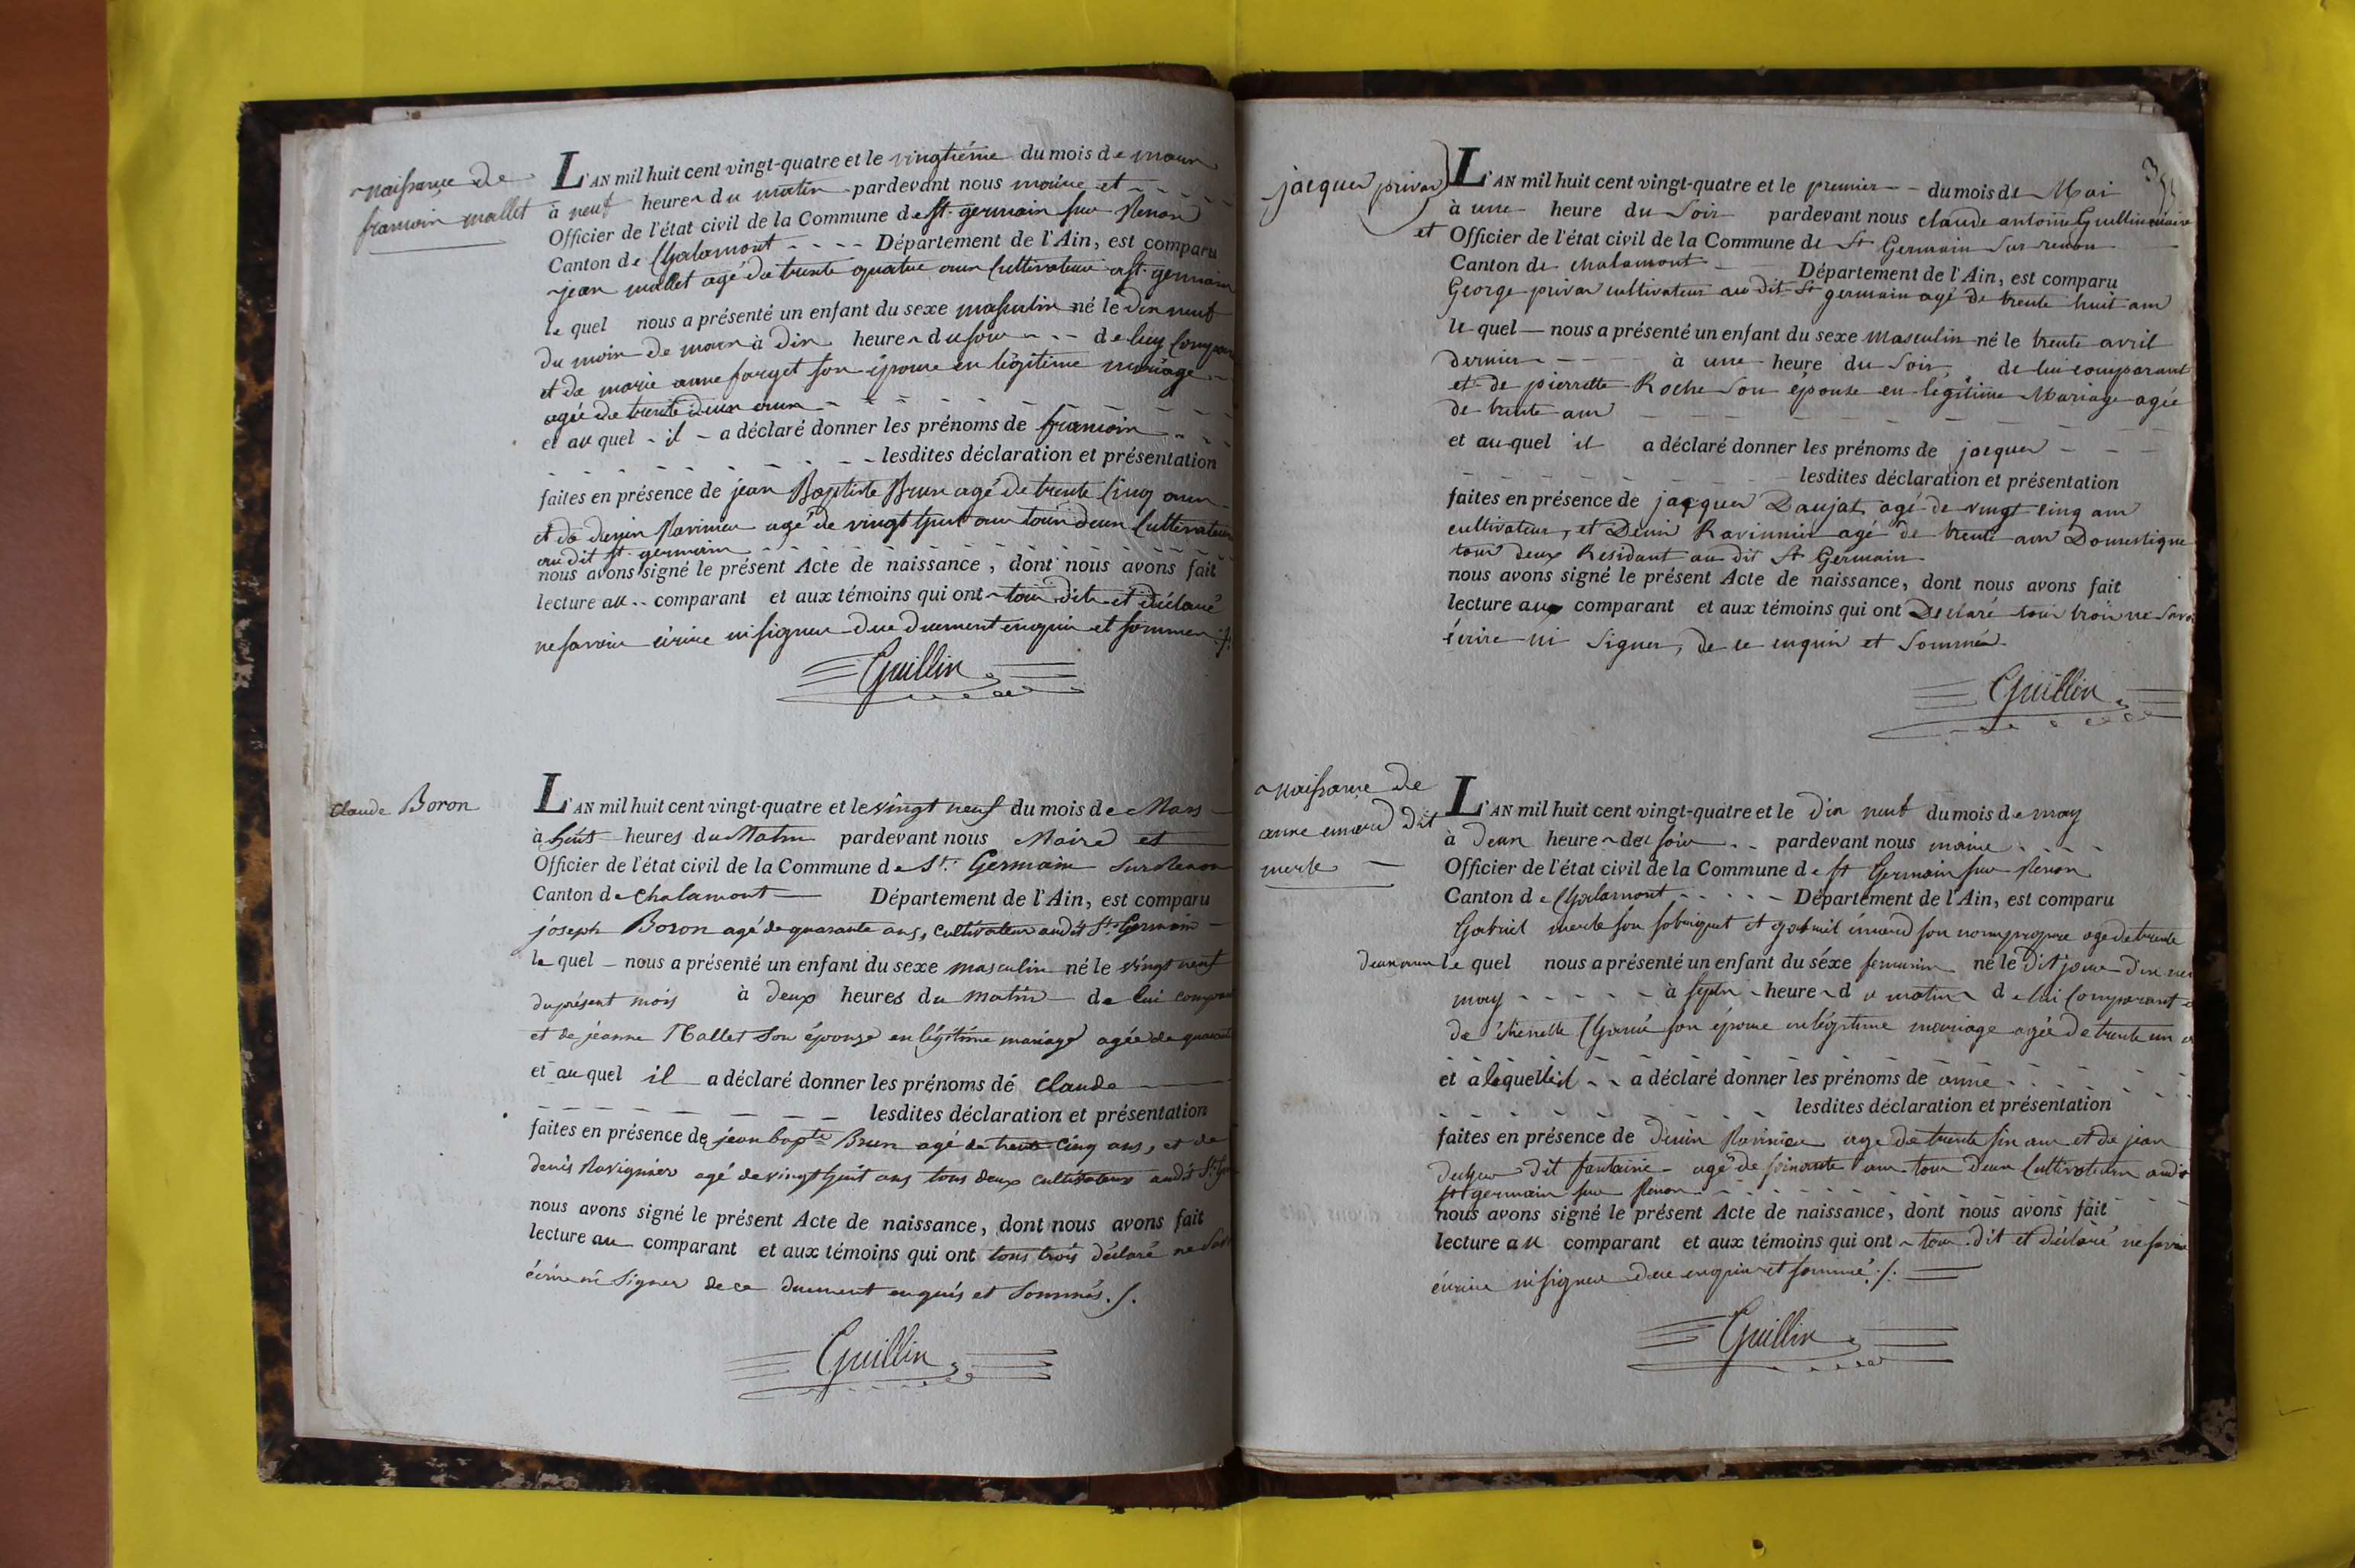 naissance de
francois mallet
L'AN mil huit cent vingt-quatre et le vingtiéme du mois de mars
à neuf heures du matin pardevant nous maire et
Officier de l'état civil de la Commune de st. germain sur Renon
Canton de Chalamont Département de l'Ain, est comparu
jean mallet agé de trente quatre ans Cultivateur a st. germain
le quel nous a présenté un enfant du sexe masculin né le dix neuf
du mois de mars à dix heures du soir de luy Compar
et de marie anne farget son épouse en légitime mariage
agée de trente deux ans
et au quel il a déclaré donner les prénoms de francois
lesdites déclaration et présentation
faites en présence de jean Baptiste Brun agé de trente Cinq ans
et de denis Ravinieu agé de vingt huit ans tous deux Cultivateurs
au dit st. germain
nous avons signé le présent Acte de naissance, dont nous avons fait
lecture au comparant et aux témoins qui ont tous dit et déclaré
ne savoir écrire ni signer de ce duement enquis et sommes ./.
Guillin
Claude Boron
L'AN mil huit cent vingt-quatre et le vingt neuf du mois de Mars
à huit heures du Matin pardevant nous Maire et
Officier de l'état civil de la Commune de St. Germain sur Renon
Canton de Chalamont Département de l'Ain, est comparu
joseph Boron agé de quarante ans, cultivateur audit St. Germain
le quel nous a présenté un enfant du sexe masculin né le vingt neuf
du présent mois à deux heures du matin de lui compar
et de jeanne Mallet son épouse en légitime mariage agée de quarante
et au quel il a déclaré donner les prénoms de Claude
lesdites déclaration et présentation
faites en présence de jean bapte Brun agé de trente cinq ans, et de
denis Ravignier agé de vingt huit ans tous deux cultivateurs audit St. Ger
nous avons signé le présent Acte de naissance, dont nous avons fait
lecture au comparant et aux témoins qui ont tous trois déclaré ne Sav
écrire ni signer de ce duement enquis et sommés ./.
Guillin
jacques privar
L'AN mil huit cent vingt-quatre et le premier du mois de Mai
à une heure du Soir pardevant nous claude antoine Guillin maire
et Officier de l'état civil de la Commune de St Germain Sur renon
Canton de chalamont Département de l'Ain, est comparu
George privar cultivateur au dit St germain agé de trente huit ans
le quel nous a présenté un enfant du sexe Masculin né le trente avril
dernier à une heure du Soir, de lui comparant
et de pierrette Roche Son épouse en légitime Mariage agée
de trente ans
et au quel il a déclaré donner les prénoms de jacques
lesdites déclaration et présentation
faites en présence de jacques Daujat agé de vingt cinq ans
cultivateur, et Denis Ravinnier agé de trente ans Domestique
tous deux Residant au dit St Germain
nous avons signé le présent Acte de naissance, dont nous avons fait
lecture au comparant et aux témoins qui ont Declaré tous trois ne Savoi
écrire ni Signer, de ce enquis et Sommés
Guillin
naissance de
anne émard dit
merle
L'AN mil huit cent vingt-quatre et le dix neuf du mois de may
à deux heures du soir pardevant nous maire
Officier de l'état civil de la Commune de st Germain sur Renon
Canton de Chalamont Département de l'Ain, est comparu
Gabriel merle son sobriquet et gabriel émard son nom propre agé de trente
deux ans le quel nous a présenté un enfant du séxe feminin né le dit jour dix neu
may à sept heures du matin de lui Comparant e
de étiennette son épouse en légitime mariage agée de trente un a
et à laquelle il a déclaré donner les prénoms de anne
lesdites déclaration et présentation
faites en présence de denis Ravinieu agé de trente six ans et de jean
dit fontaine agé de soixante ans tous deux Cultivateurs audit
st germain sur Renon
nous avons signé le présent Acte de naissance, dont nous avons fait
lecture au comparant et aux témoins qui ont tous dit et déclaré ne savoir
écrire ni signer de ce enquis et sommé ./.
Guillin